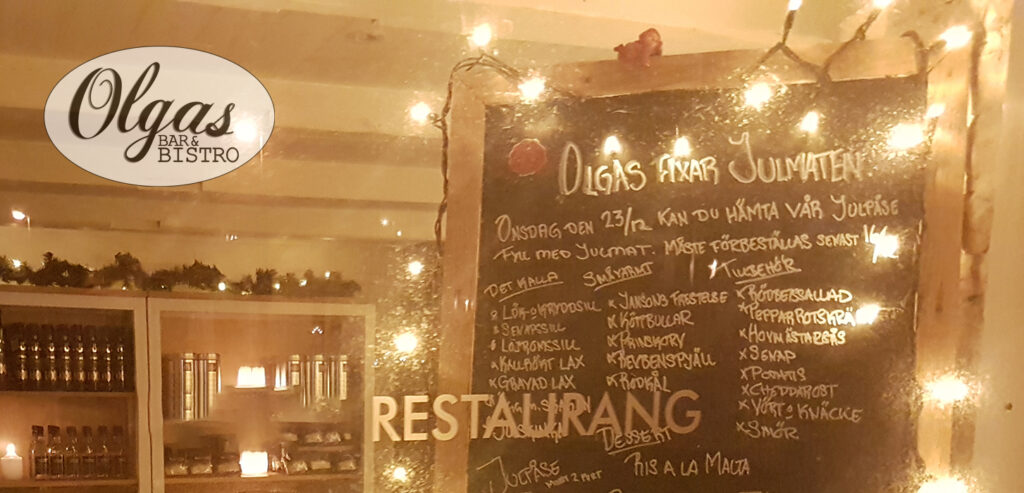 Olgas
BAR &
BISTRO
OLGAS FIXAR JULMATEN
ONSDAG DEN 23/12 KAN DU HÄMTA VÅR JULPÅSE
FYLLD MED JULMAT. MÅSTE FÖRBESTÄLLAS SENAST
DET KALLA
LÖK- O KRYDDSILL
SENAPSSILL
LÖJROMSSILL
KALLRÖKT LAX
GRAVAD LAX
SMÅVARMT
JANSONS FRESTELSE
KÖTTBULLAR
PRINSKORV
REVBENSPJÄLL
RÖDKÅL
TILLBEHÖR
RÖDBETSSALLAD
PEPPARROTSKRÄM
HOVMÄSTARSÅS
SENAP
POTATIS
CHEDDAROST
VÖRT O KNÄCKE
SMÖR
RESTAURANG
DESSERT
RIS A LA MALTA
JULPÅSE